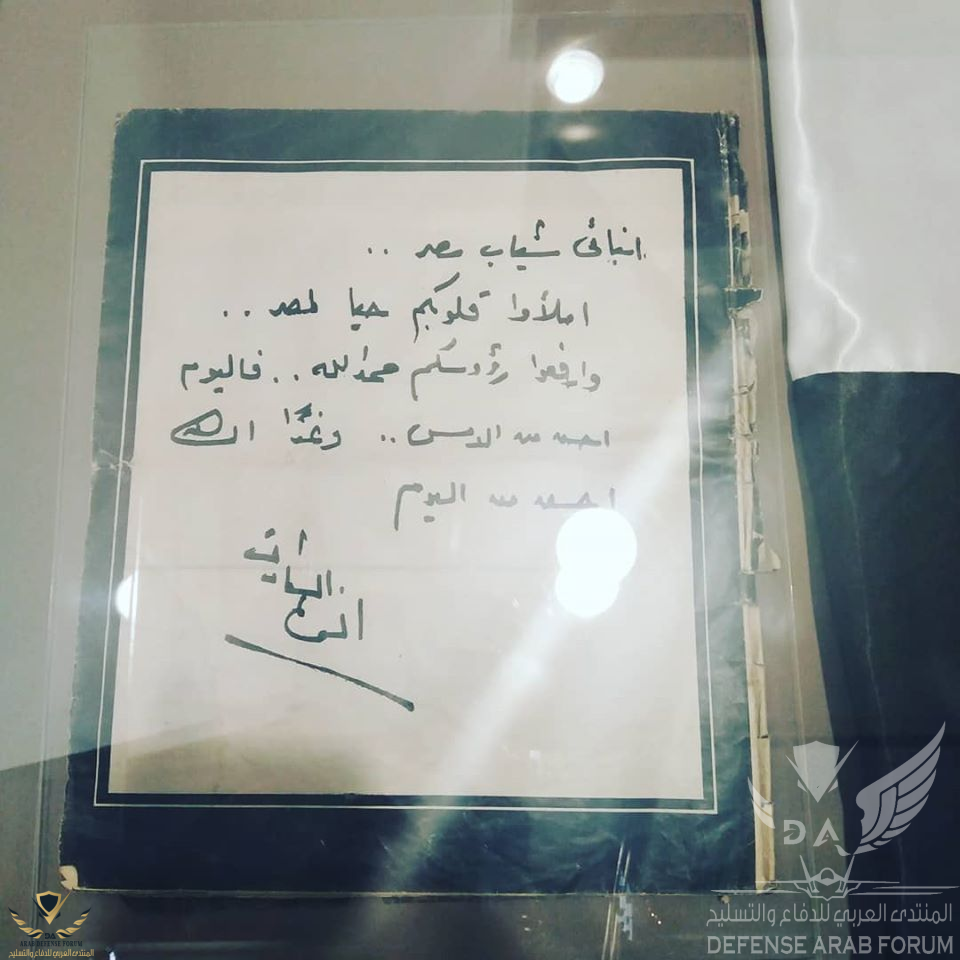 ابنائى شباب مصر ..
املأوا قلوبكم حبا لمصر ..
وارفعوا رؤوسكم حمدا لله .. فاليوم
احسن من الامس .. وغدًا ان شاء الله
احسن من اليوم
انور السادات
DA
المنتدى العربي للدفاع والتسليح
DEFENSE ARAB FORUM
DA
ARAB DEFENSE FORUM
المنتدى العربي للدفاع والتسليح